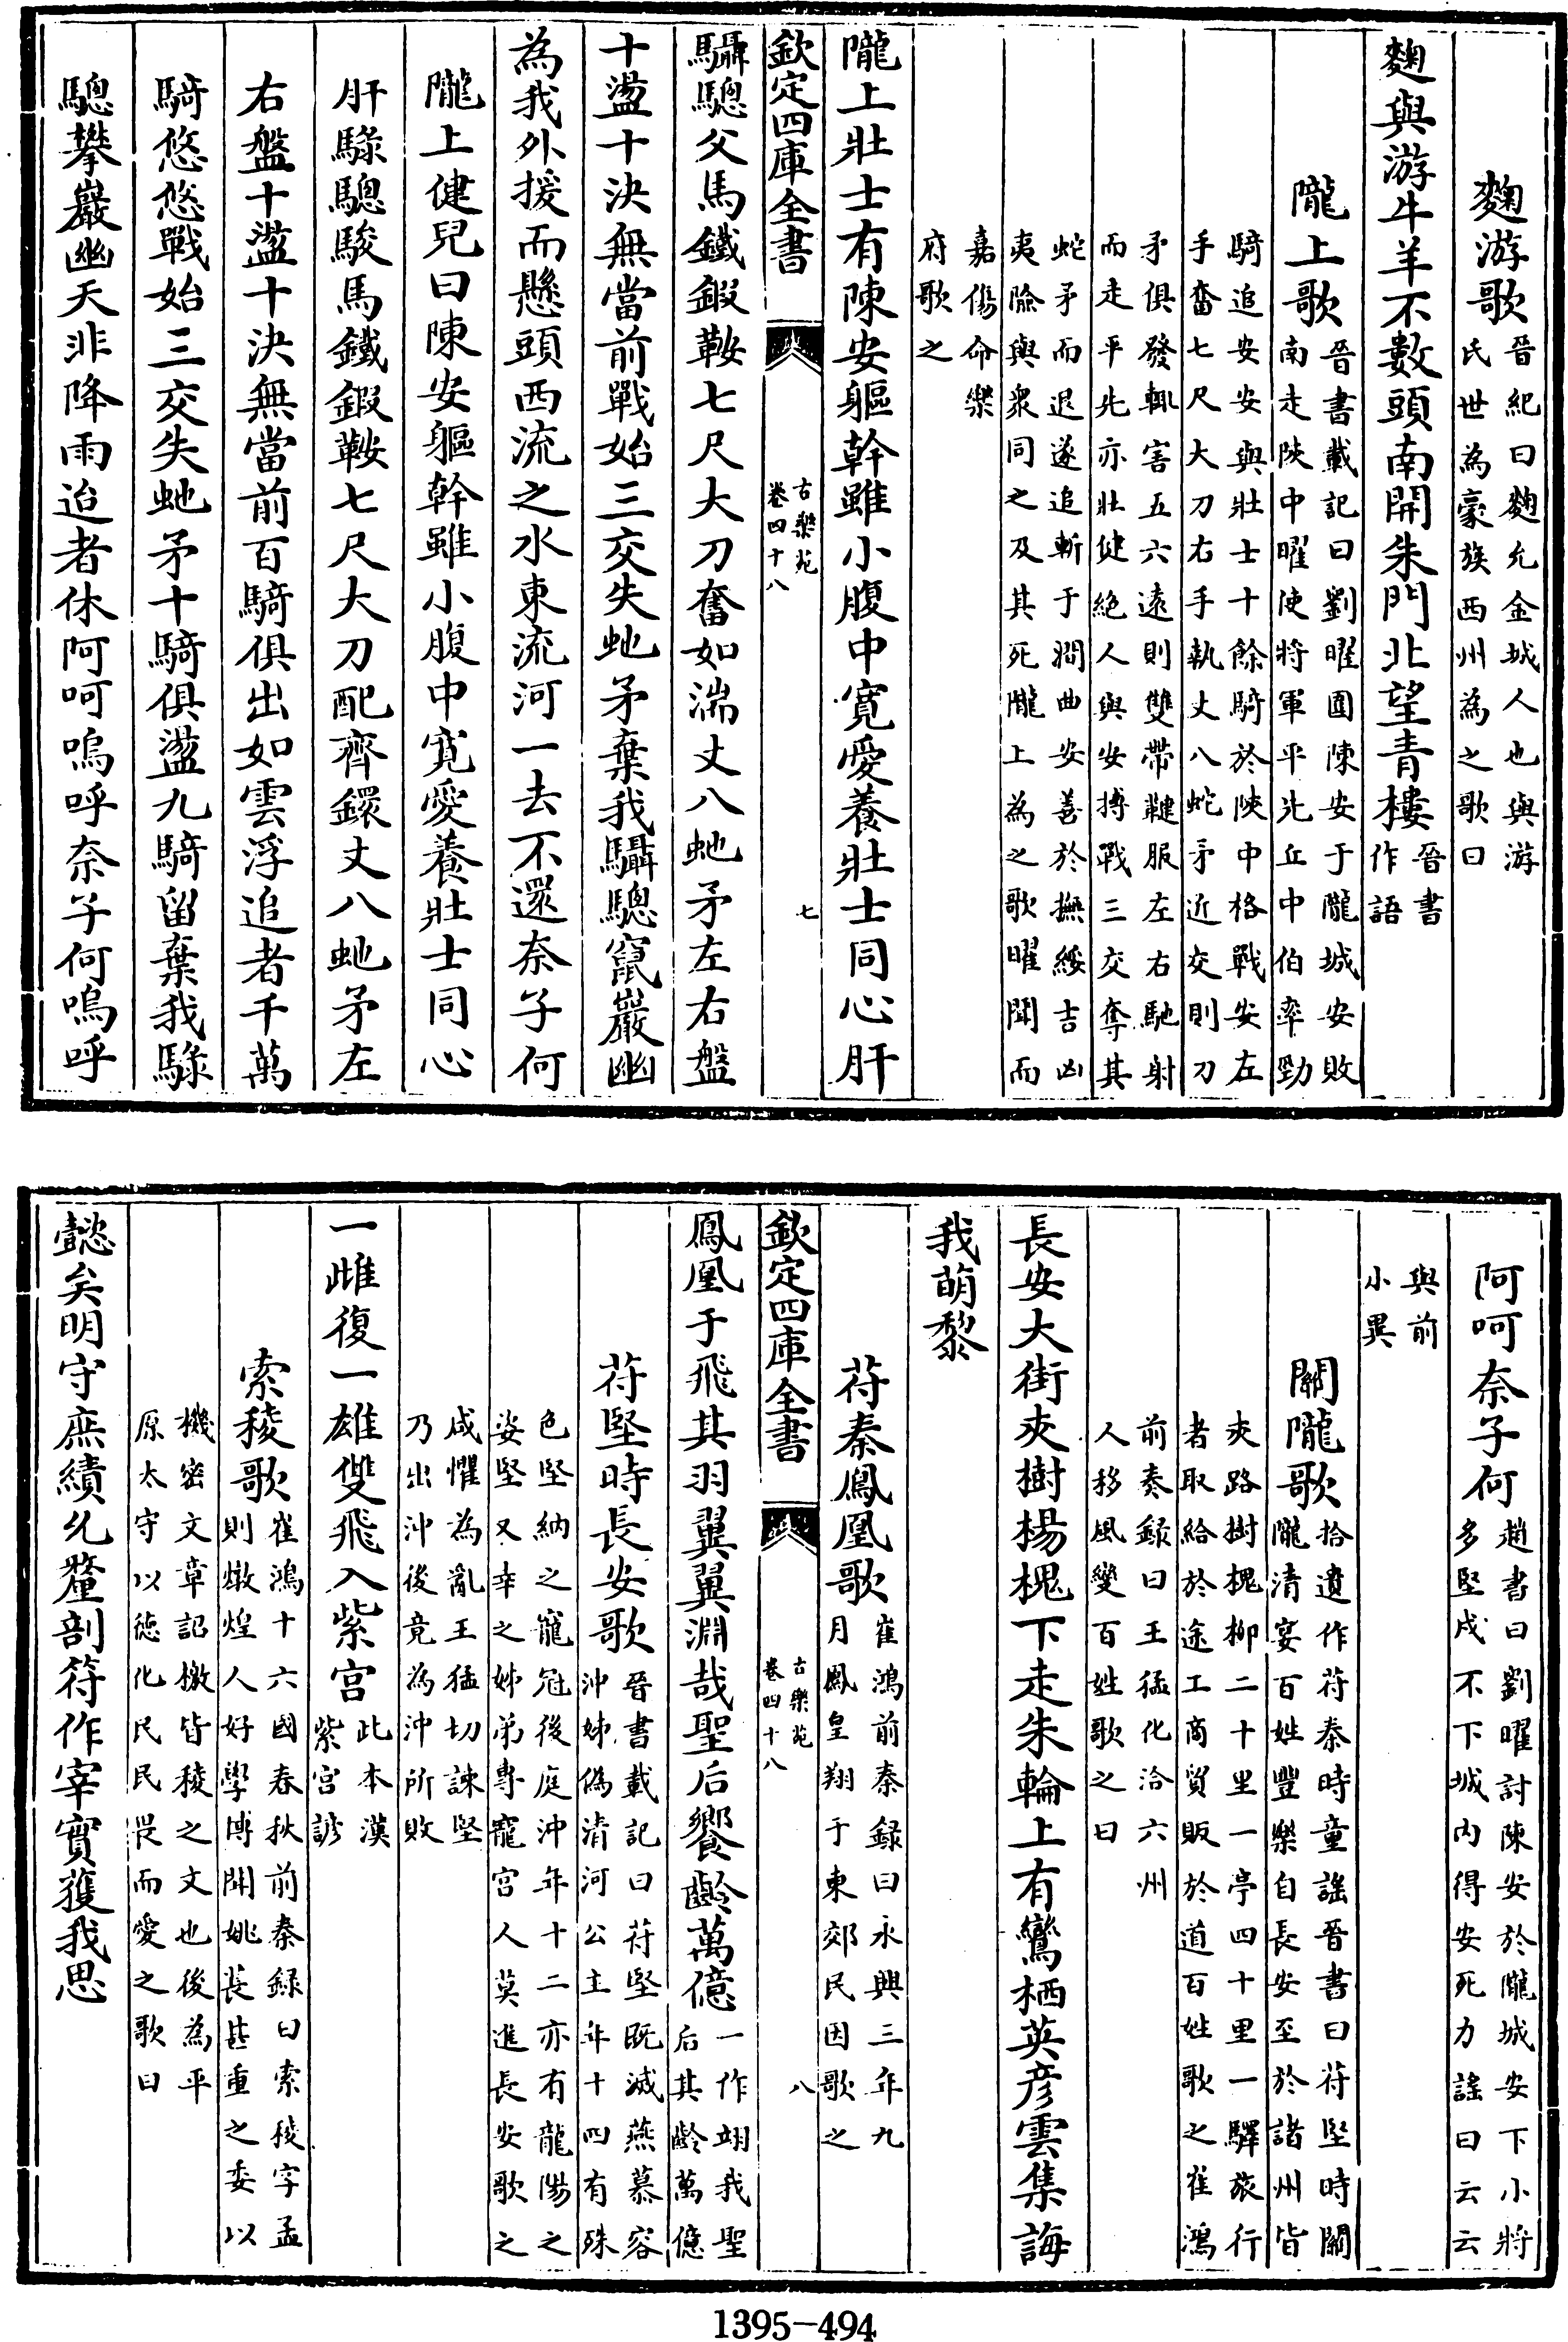 麴游歌晉紀曰麴允金城人也與游
氏世為豪族西州為之歌曰
麴與游牛羊不數頭南開朱門北望青樓晉書
作語
隴上歌晉書載記曰劉曜圍陳安于隴城安敗
南走陜中曜使將軍平先丘中伯率勁
騎追安安與壯士十餘騎於陜中格戰安左
手奮七尺大刀右手執丈八蛇矛近交則刀
矛俱發輒害五六遠則雙帶鞬服左右馳射
而走平先亦壯健絶人與安搏戰三交奪其
蛇矛而退遂追斬于澗曲安善於撫綏吉凶
夷險與衆同之及其死隴上為之歌曜聞而
嘉傷命樂
府歌之
隴上壯士有陳安軀幹雖小腹中寛愛養壯士同心肝
欽定四庫全書
古樂苑
卷四十八
七
驦驄父馬鐵鍛鞍七尺大刀奮如湍丈八虵矛左右盤
十盪十決無當前戰始三交失虵矛棄我驦驄竄巖幽
為我外援而懸頭西流之水東流河一去不還奈子何
隴上健兒曰陳安軀幹雖小腹中寛愛養壯士同心
肝騄驄駿馬鐵鍛鞍七尺大刀配齊鐶丈八虵矛左
右盤十盪十決無當前百騎俱出如雲浮追者千萬
騎悠悠戰始三交失虵矛十騎俱盪九騎留棄我騄
驄攀巖幽天非降雨迨者休阿呵嗚呼奈子何嗚呼
阿呵奈子何趙書曰劉曜討陳安於隴城安下小將
多堅戍不下城内得安死力謡曰云云
與前
小異
關隴歌拾遺作苻秦時童謡晉書曰苻堅時關
隴清宴百姓豐樂自長安至於諸州皆
夾路樹槐柳二十里一亭四十里一驛旅行
者取給於途工商貿販於道百姓歌之崔鴻
前秦録曰王猛化洽六州
人移風變百姓歌之曰
長安大街夾樹楊槐下走朱輪上有鸞栖英彦雲集誨
我萌黎
苻秦鳳凰歌崔鴻前秦録曰永興三年九
月鳳皇翔于東郊民因歌之
欽定四庫全書
古樂苑
卷四十八
八
鳳凰于飛其羽翼翼淵哉聖后饗齡萬億一作翊我聖
后其齡萬億
苻堅時長安歌晉書載記曰苻堅既滅燕慕容
沖姊偽清河公主年十四有殊
色堅納之寵冠後庭沖年十二亦有龍陽之
姿堅又幸之姊弟專寵宫人莫進長安歌之
咸懼為亂王猛切諫堅
乃出沖後竟為沖所敗
一雌復一雄雙飛入紫宫此本漢
紫宫諺
索稜歌崔鴻十六國春秋前秦録曰索稜字孟
則燉煌人好學博聞姚萇甚重之委以
機密文章詔檄皆稜之文也後為平
原太守以徳化民民畏而愛之歌曰
懿矣明守庶績允釐剖符作宰實獲我思
1395-494